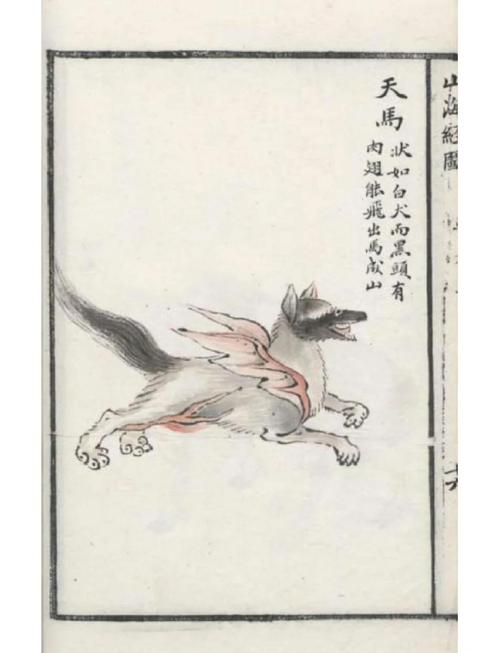 山海經圖
天馬
状如白犬而黑頭有
肉翅能飛出馬成山